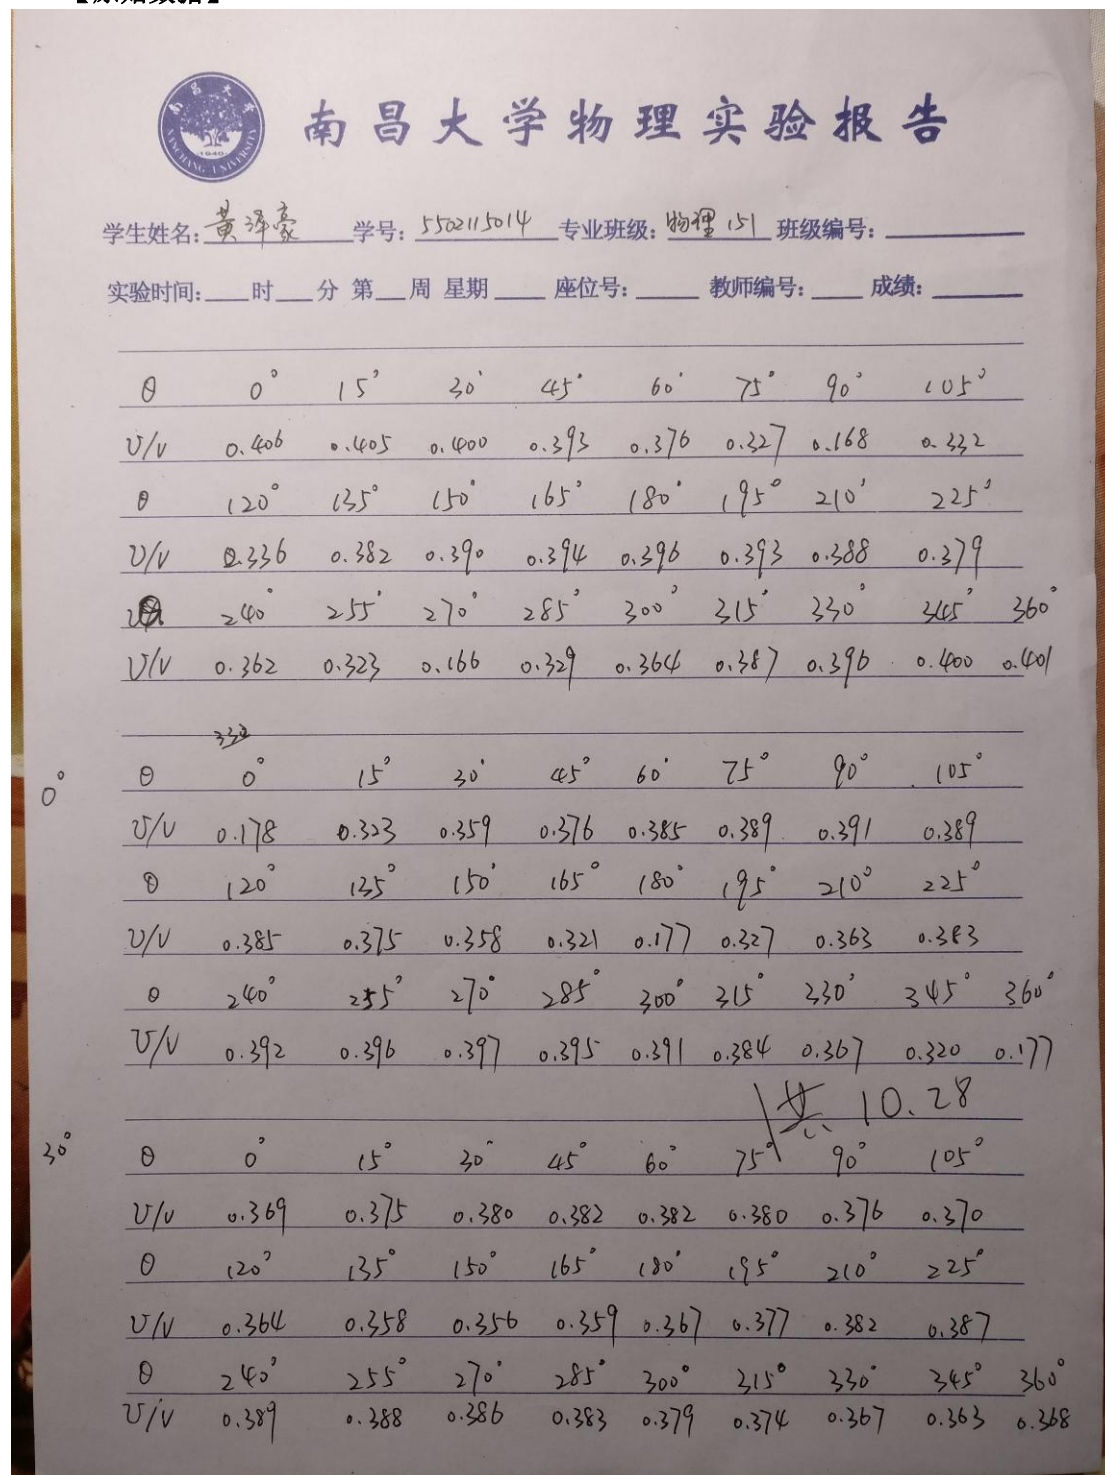 【原始数据】
南昌大学物理实验报告
南昌大学
NANCHANG UNIVERSITY
1940
学生姓名: 黄泽豪 学号: 5502115014 专业班级: 物理151 班级编号:
实验时间: 时 分 第 周 星期 座位号: 教师编号: 成绩:
θ 0° 15° 30° 45° 60° 75° 90° 105°
U/V 0.406 0.405 0.400 0.393 0.376 0.327 0.168 0.332
θ 120° 135° 150° 165° 180° 195° 210° 225°
U/V 0.336 0.382 0.390 0.394 0.396 0.393 0.388 0.379
θ 240° 255° 270° 285° 300° 315° 330° 345° 360°
U/V 0.362 0.323 0.166 0.329 0.364 0.387 0.396 0.400 0.401
0° θ 0° 15° 30° 45° 60° 75° 90° 105°
U/V 0.178 0.323 0.359 0.376 0.385 0.389 0.391 0.389
θ 120° 135° 150° 165° 180° 195° 210° 225°
U/V 0.385 0.375 0.358 0.321 0.177 0.327 0.363 0.383
θ 240° 255° 270° 285° 300° 315° 330° 345° 360°
U/V 0.392 0.396 0.397 0.395 0.391 0.384 0.367 0.320 0.177
10.28
30° θ 0° 15° 30° 45° 60° 75° 90° 105°
U/V 0.369 0.375 0.380 0.382 0.382 0.380 0.376 0.370
θ 120° 135° 150° 165° 180° 195° 210° 225°
U/V 0.364 0.358 0.356 0.359 0.367 0.377 0.382 0.387
θ 240° 255° 270° 285° 300° 315° 330° 345° 360°
U/V 0.389 0.388 0.386 0.383 0.379 0.374 0.367 0.363 0.368